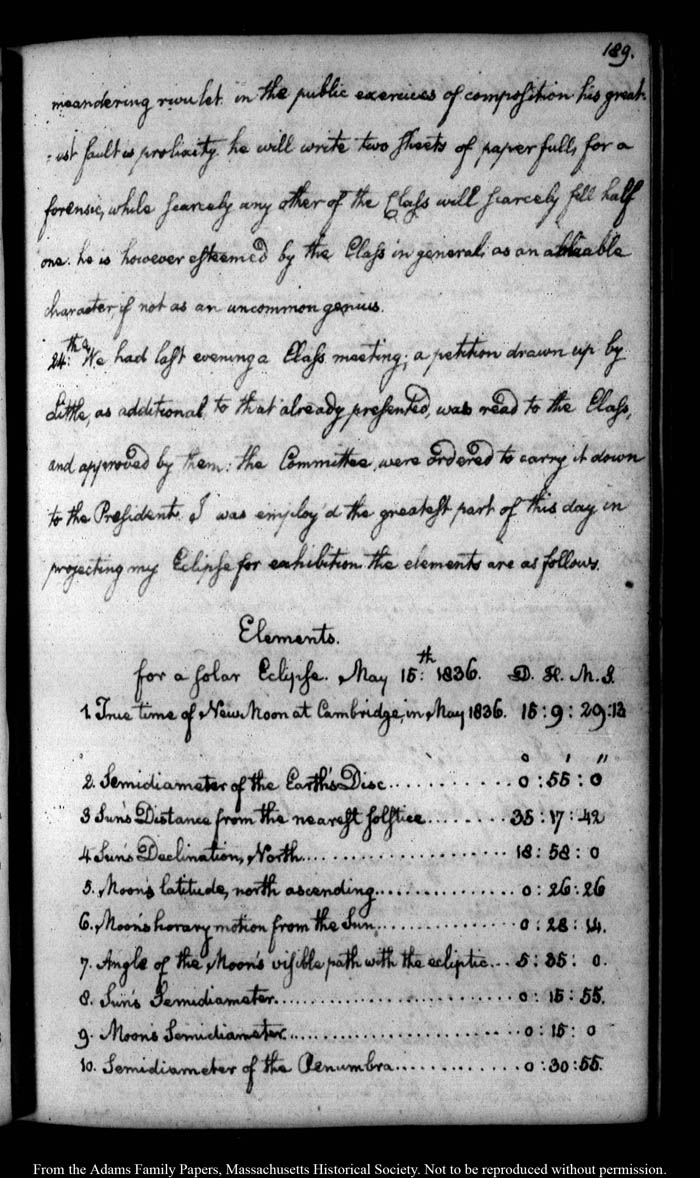 189.
meandering rivulet. in the public exercises of composition his great-
-est fault is prolixity. he will write two sheets of paper full, for a
forensic, while scarcely any other of the Class will scarcely fill half
one. he is however esteemed by the Class in general, as an able
character if not as an uncommon genius.
24th. We had last evening a Class meeting; a petition drawn up by
Little, as additional to that already presented, was read to the Class,
and approved by them: the Committee were ordered to carry it down
to the President. I was employ'd the greatest part of this day in
projecting my Eclipse for exhibition. the elements are as follows.
Elements.
for a solar Eclipse. May 15th: 1836. D. H. M. S.
1. True time of New Moon at Cambridge, in May 1836. 15 : 9 : 29 : 13
° ' "
2. Semidiameter of the Earth's Disc............ 0 : 55 : 0
3 Sun's Distance from the nearest solstice........ 35 : 17 : 42
4 Sun's Declination, North.................. 18 : 58 : 0
5. Moon's latitude, north ascending............ 0 : 26 : 26
6. Moon's horary motion from the Sun............ 0 : 28 : 14.
7. Angle of the Moon's visible path with the ecliptic... 5 : 35 : 0.
8. Sun's Semidiameter..................... 0 : 15 : 55.
9. Moon's Semidiameter..................... 0 : 15 : 0
10. Semidiameter of the Penumbra............ 0 : 30 : 55.
From the Adams Family Papers, Massachusetts Historical Society. Not to be reproduced without permission.